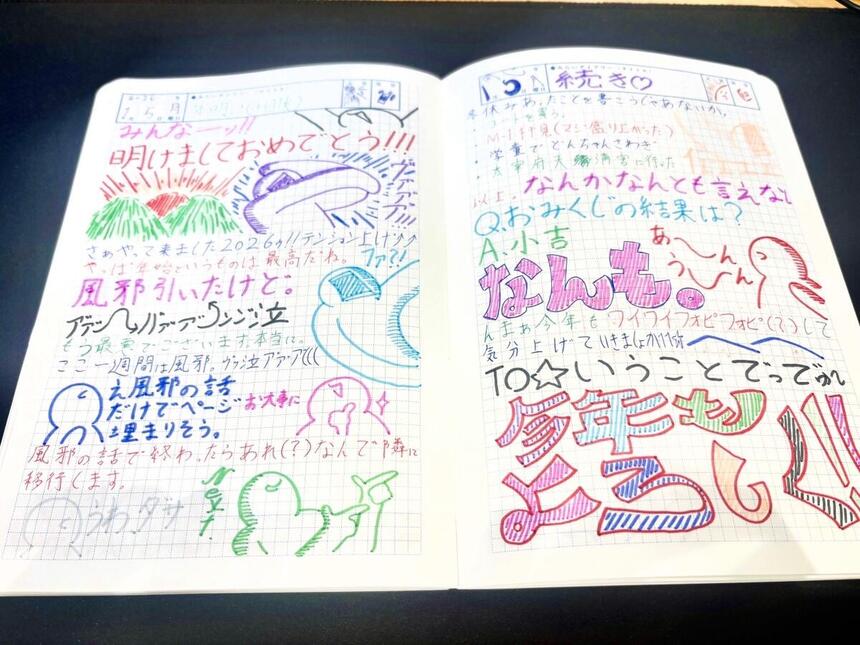 1 5 月
みんなーッ!!
明けましておめでとう!!!
ヴァアアア!!
さぁやって来ました2026の!!テンション上げ
ファ?!
やっぱ年始というものは最高だね。
風邪引いたけど。
もう最悪でございます本当に。
ここ一週間は風邪。
え風邪の話
だけでページ
埋まりそう。
お大事に
風邪の話で終わったらあれ(?)なんで隣に
移行します。
うわ、ダサ
Next!
1.5
続き♡
冬休みあったことを書こうじゃあないか。
・コートを買う。
・M-1 拝見(マジ盛り上がった)
・学童でどんちゃんさわぎ
・太宰府天満宮に行った
以上
なんかなんとも言えない
Q.おみくじの結果は?
A.小吉
あ〜〜ん
う〜〜ん
なんも。
んまぁ今年もワイワイフォピフォピ(?)して
気分上げていきましょか
TO☆いうことでっでが〜
今年も
よろしく!!